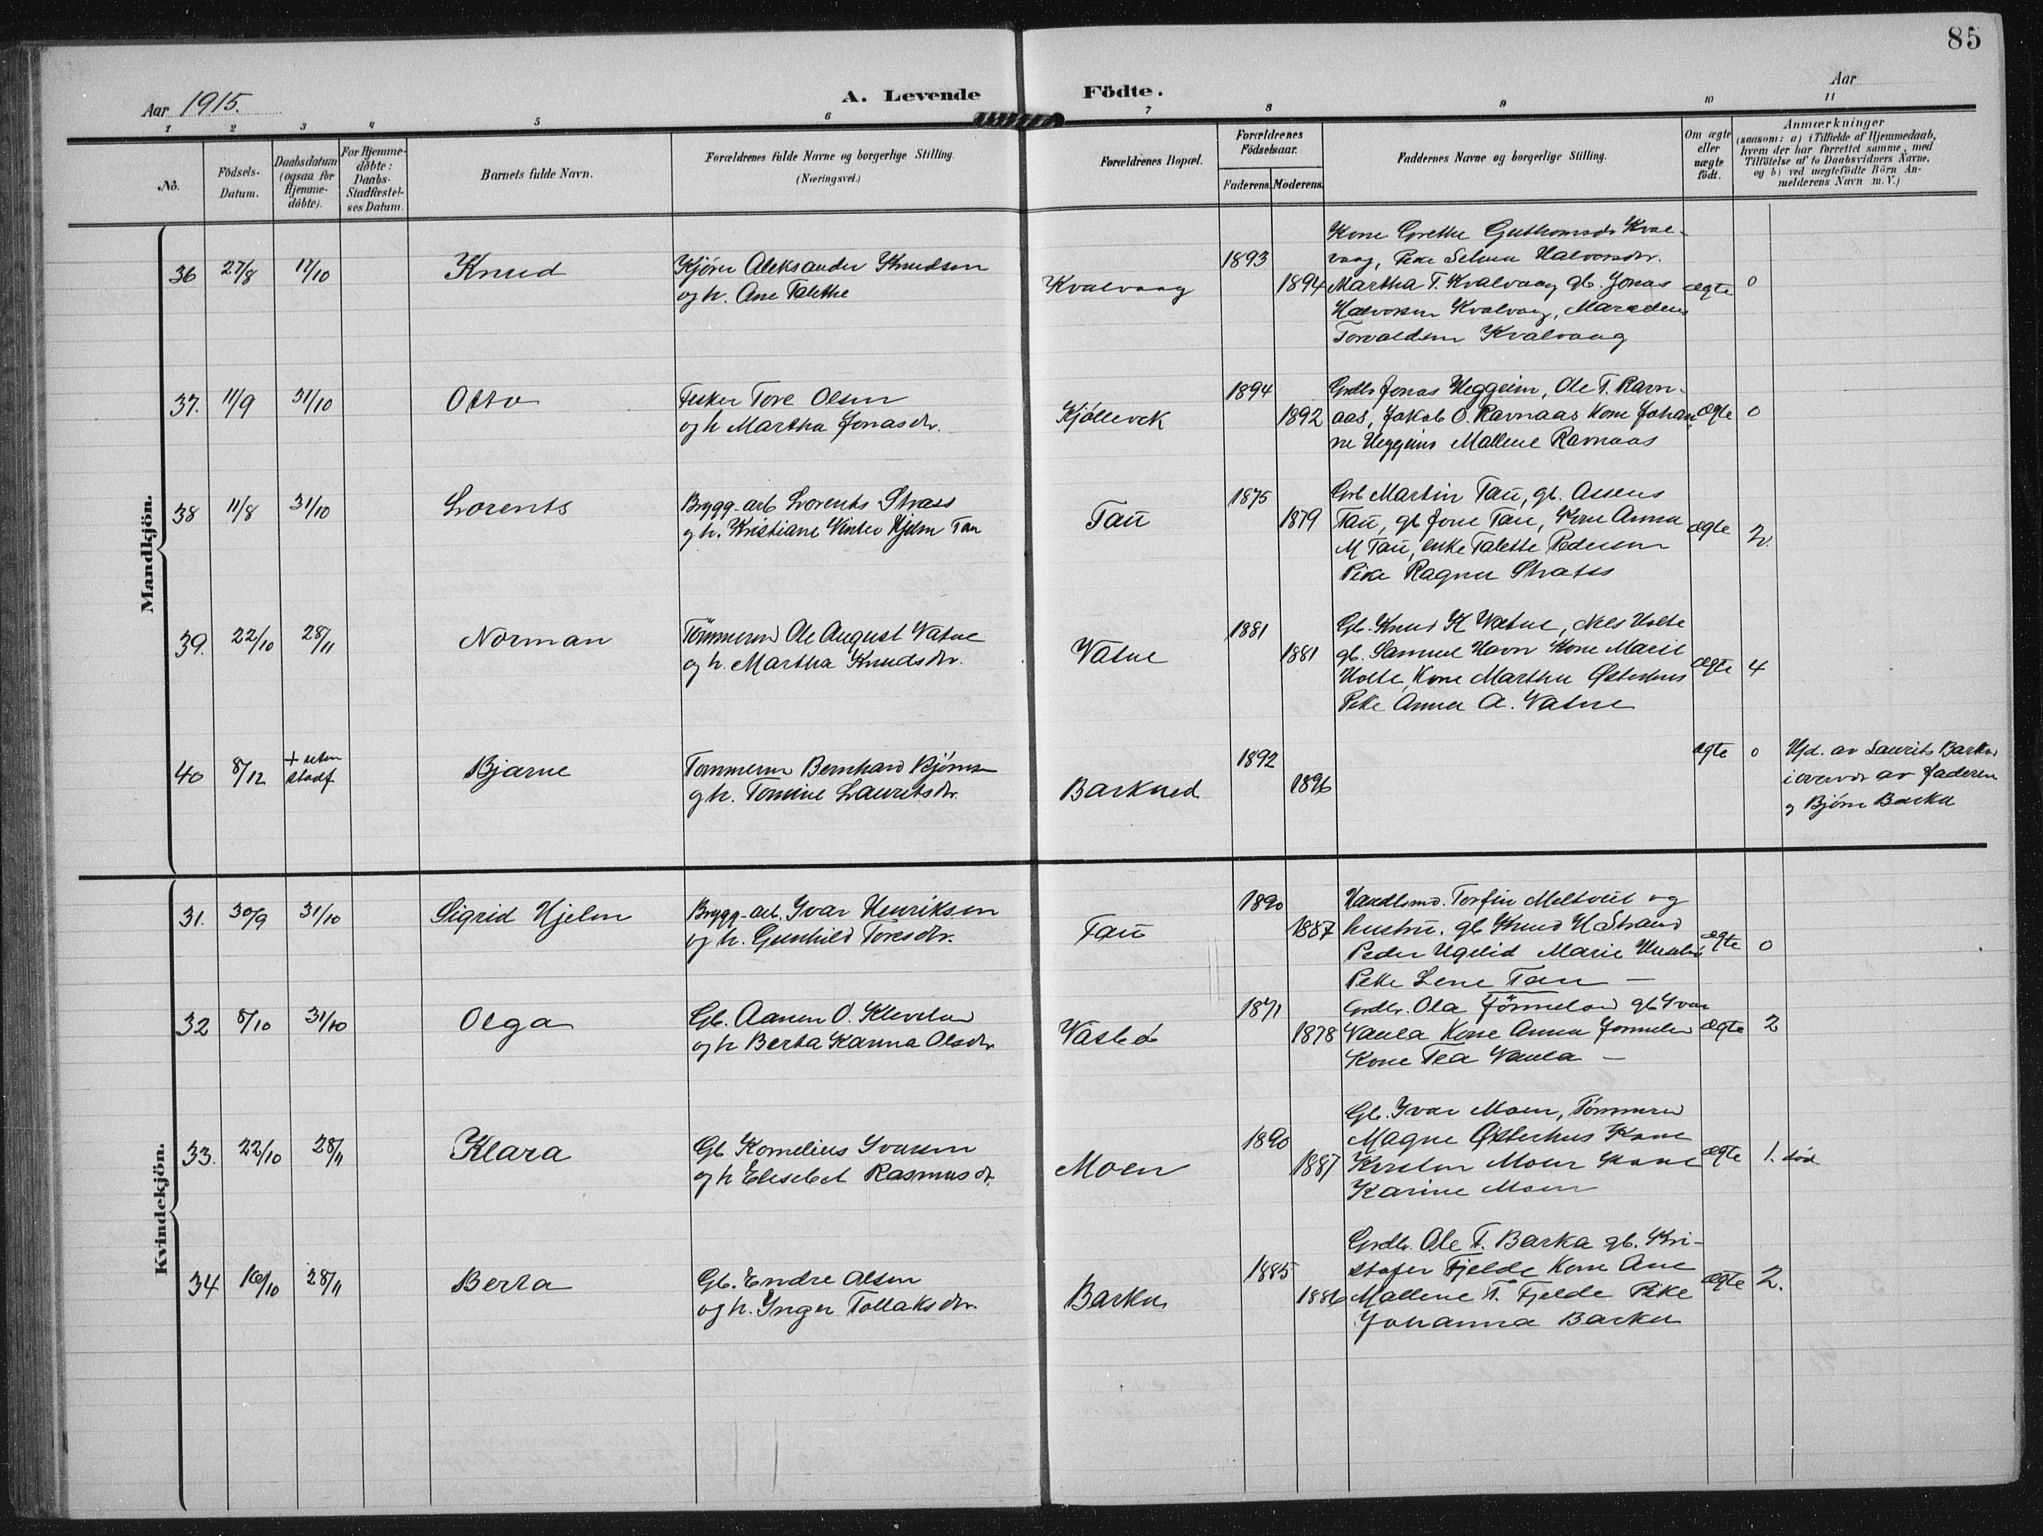 85
Aar 1915.
A. Levende Födte.
Aar
1 2 3 4 5 6 7 8 9 10 11
No.
Födsels-Datum.
Daabsdatum (ogsaa for Hjemme-döbte).
For Hjemme-döbte: Daabs-Stadfæstel-ses Datum.
Barnets fulde Navn.
Forældrenes fulde Navne og borgerlige Stilling.
(Næringsvei.)
Forældrenes Bopæl.
Forældrenes Födselsaar.
Faderens. Moderens.
Faddernes Navne og borgerlige Stilling.
Om ægte eller uægte födt.
Anmærkninger
(saasom: a) i Tilfælde af Hjemmedaab,
hvem der har forrettet samme, med
Tilföielse af to Daabsvidners Navne,
og b) ved uægtefödte Börn An-
melderens Navn m. V.)
Mandkjön.
36 27/8 17/10 Knud
Kjører Aleksander Knudsen
og h. Ane Talette
Kvalvaag 1893 1894
Kone Grethe Guthormsdr Kval-
vaag, Pike Selma Halvorsdr.
Martha T. Kvalvaag gb. Jonas
Halvorsen Kvalvaag,
Torvaldsen Kvalvaag
ægte 0
37. 11/9 31/10 Otto
Fisker Tore Olsen
og h Martha Jonasdr.
Kjøllevik 1894 1892
Grdbr Jonas Heggeim, Ole T. Ravn-
aas, Jakob O. Ravnaas Kone Johan
ne Heggeim Mallene Ravnaas
ægte 0
38 11/8 31/10 Lorents
Brygg-arb Lorents Strass
g h. Kristiane Vinter Hjelm Tau
Tau 1875 1879
Grb Martin Tau, gb. Assens
Tau, gb Jone Tau, Kone Anna
M Tau, enke Talette Pedersen
Pike Ragna
ægte 2.
39. 22/10 28/11 Norman
Tömmerm Ole August Vatne
og h. Martha Knudsdr.
Vatne 1881 1881
Gb. Knud K Vatne, Nels Holte
gb. Samuel Havn Kone Marie
Holte, Kone Martha Østerhus
Pike Anna A. Vatne
ægte 4
40 8/12 + uten stadf Bjarne
Tømmerm Bernhard Bjørnsen
g h. Tomine Lauritsdr.
Barkned 1892 1896
ægte 0
Hjd. av Laurits Barka
i overvær av faderen
g Bjørn Barka
Kvindekjön.
31. 30/9 31/10 Sigrid Hjelm
Brygg-arb. Ivar Henriksen
og h. Gunhild Toresdr.
Tau 1890 1887
Handlsmd. Torfin Meltveit og
hustru. gb Knud H Strand
Peder Ugelid Marie
Pike Lene Tau —
ægte 0
32 8/10 31/10 Olga
Gb. Aanen O. Kleveland
og h Berta Karina Olsdr.
Vasbø 1871 1878
Grdbr. Ola Jørmeland gb Ivar
Vaula Kone Anna Jørmeland
Kone Tea Vaula —
ægte 2
33. 22/10 28/11 Klara
Gb Kornelius Ivarsen
og h Elisabet Rasmusdr.
Moen 1890 1887
Gb. Ivar Moen, Tömmerm
Magne Østerhus Kone
Kirsten Moen Kone
Karine Moen
ægte 1. død
34 16/10 28/11 Berta
Gb. Endre Olsen
og h. Inger Tollaksdr.
Barka 1885 1886
Grdbr. Ole T. Barka gb. Kri-
stofer Fjelde Kone Ane
Mallene T. Fjelde Pike
Johanna Barka
ægte 2.